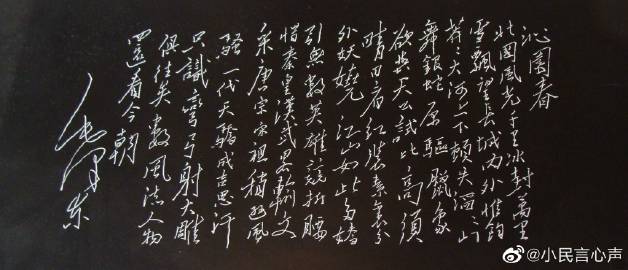 沁園春
北國風光千里冰封萬里
雪飄望長城内外惟餘
莽々大河上下頓失滔々山
舞銀蛇原驅臘象
欲與天公試比高須
晴日看紅裝素裹分
外妖嬈江山如此多嬌
引無數英雄競折腰
惜秦皇漢武略輸文
采唐宗宋祖稍遜風
騷一代天驕成吉思汗
只識彎弓射大雕
俱往矣數風流人物
還看今朝
毛澤東
@小民言心声